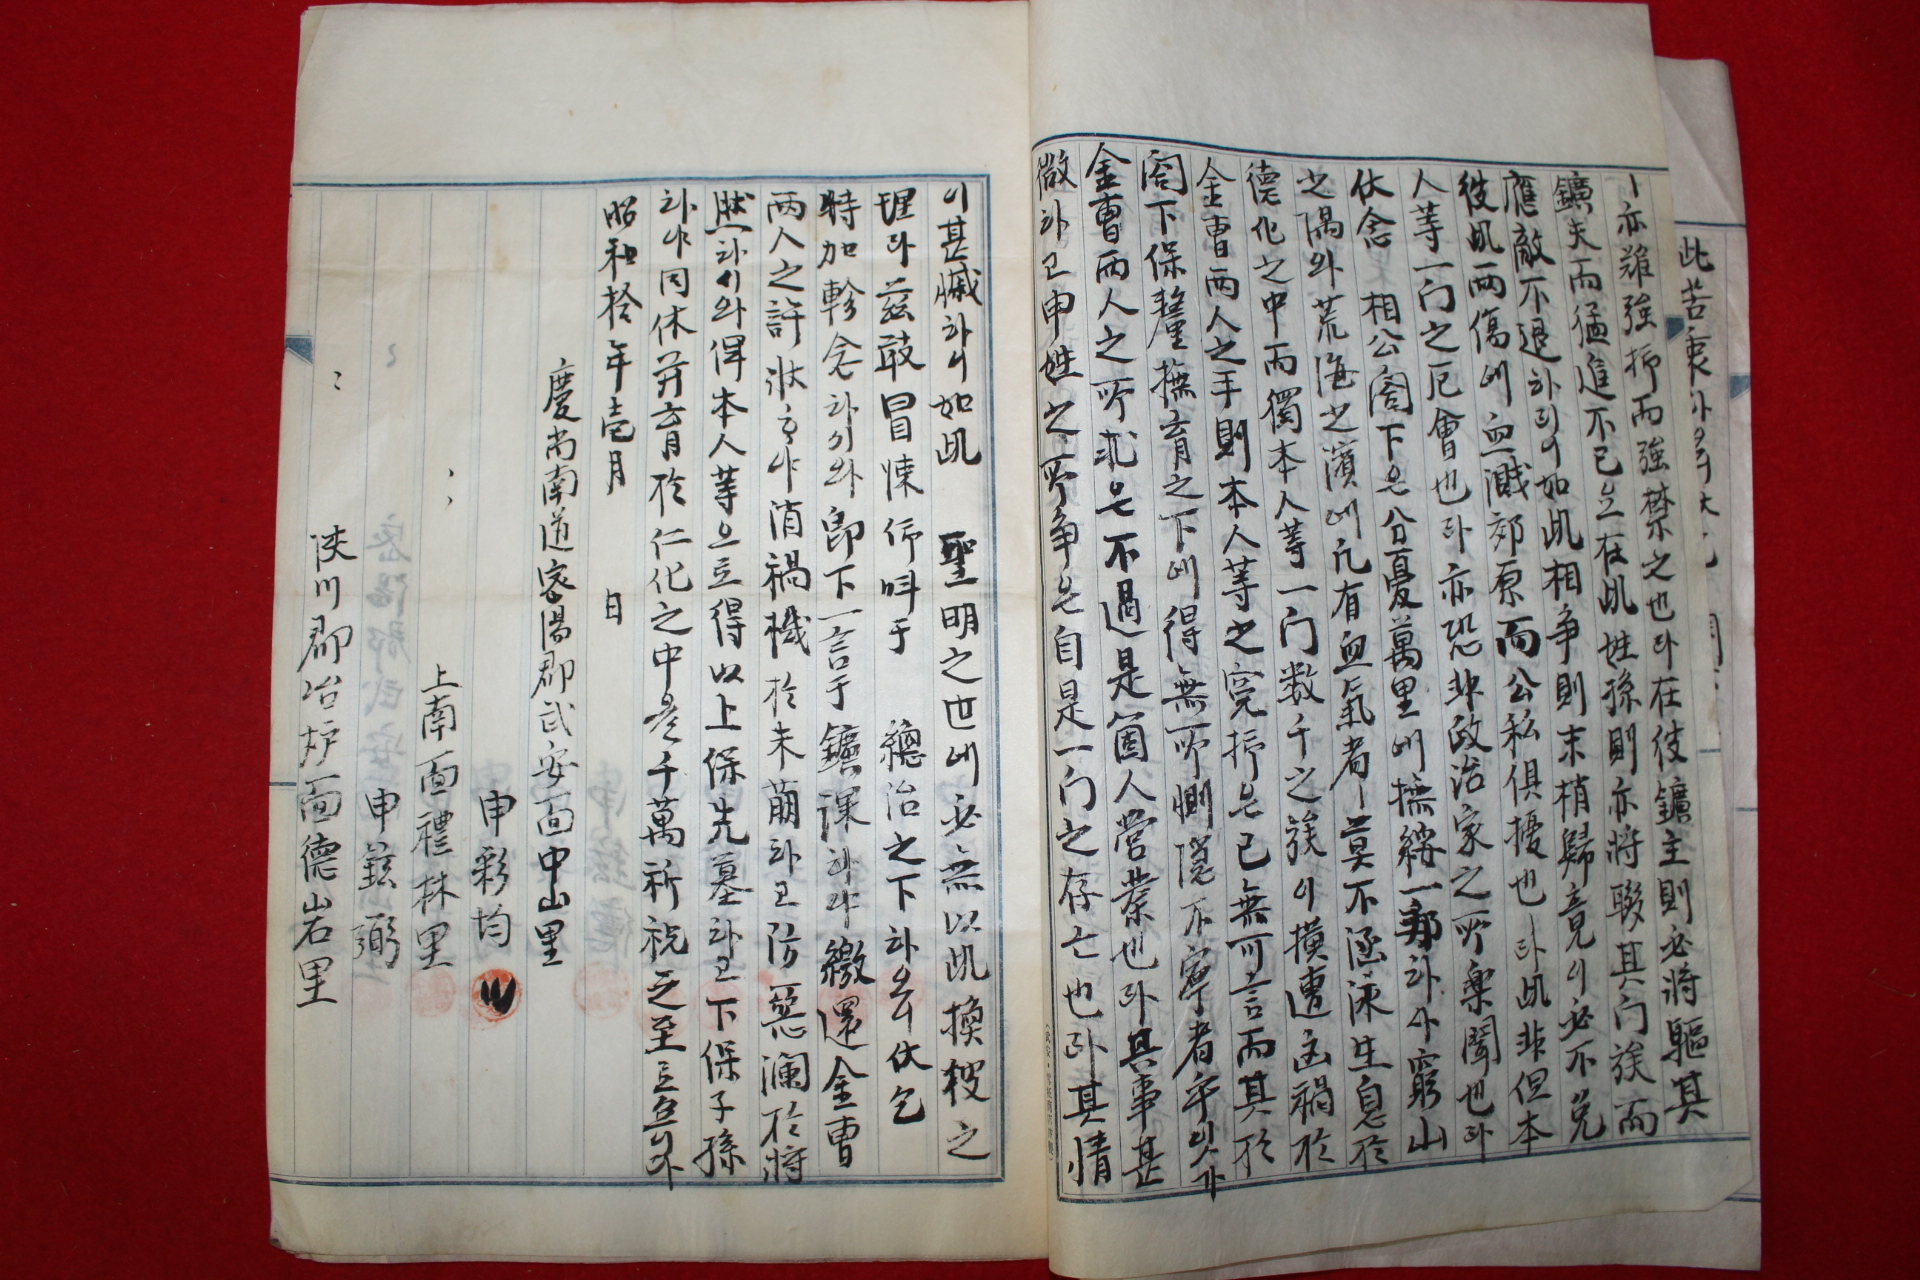 此苦衷
ㅣ亦難強抑而強禁之也라在彼鑛主則必將驅其
鑛夫而猛進不已오在此姓孫則亦將聚其门族而
應敵不退하리니如此相爭則末梢歸竟이必不免
彼此两傷에血濺郊原而公私俱擾也라此非但本
人等一门之厄會也라亦恐非政治家之所樂聞也라
伏念 相公阁下은分憂萬里에撫綏一邦하사窮山
之隅와荒海之濱에凡有血氣者ㅣ莫不涵泳生息於
德化之中而獨本人等一门数千之族이橫遭凶禍於
金曺两人之手則本人等之寃抑은已無可言而其於
阁下保釐撫育之下에得無所惻隱不寧者乎잇가
金曺两人之所求은不過是箇人营業也라其事甚
微하고申姓之所争은自是一门之存亡也라其情
이甚慽하니如此 聖明之世에必無以此換彼之
理라茲敢冒悚仰呌于 總治之下하오니伏乞
特加軫念하시와卽下一言于鑛課하야繳還金曺
两人之許狀하야消禍機於未萌하고防惡瀾於將
然하시와俾本人等으로得以上保先墓하고下保子孫
하야同休并育於仁化之中을千萬祈祝之至로소이다
昭和拾年壱月 日
慶尚南道密陽郡武安面中山里
申彩均
〃 上南面禮林里
申鉉弼
〃 陜川郡冶炉面德岩里